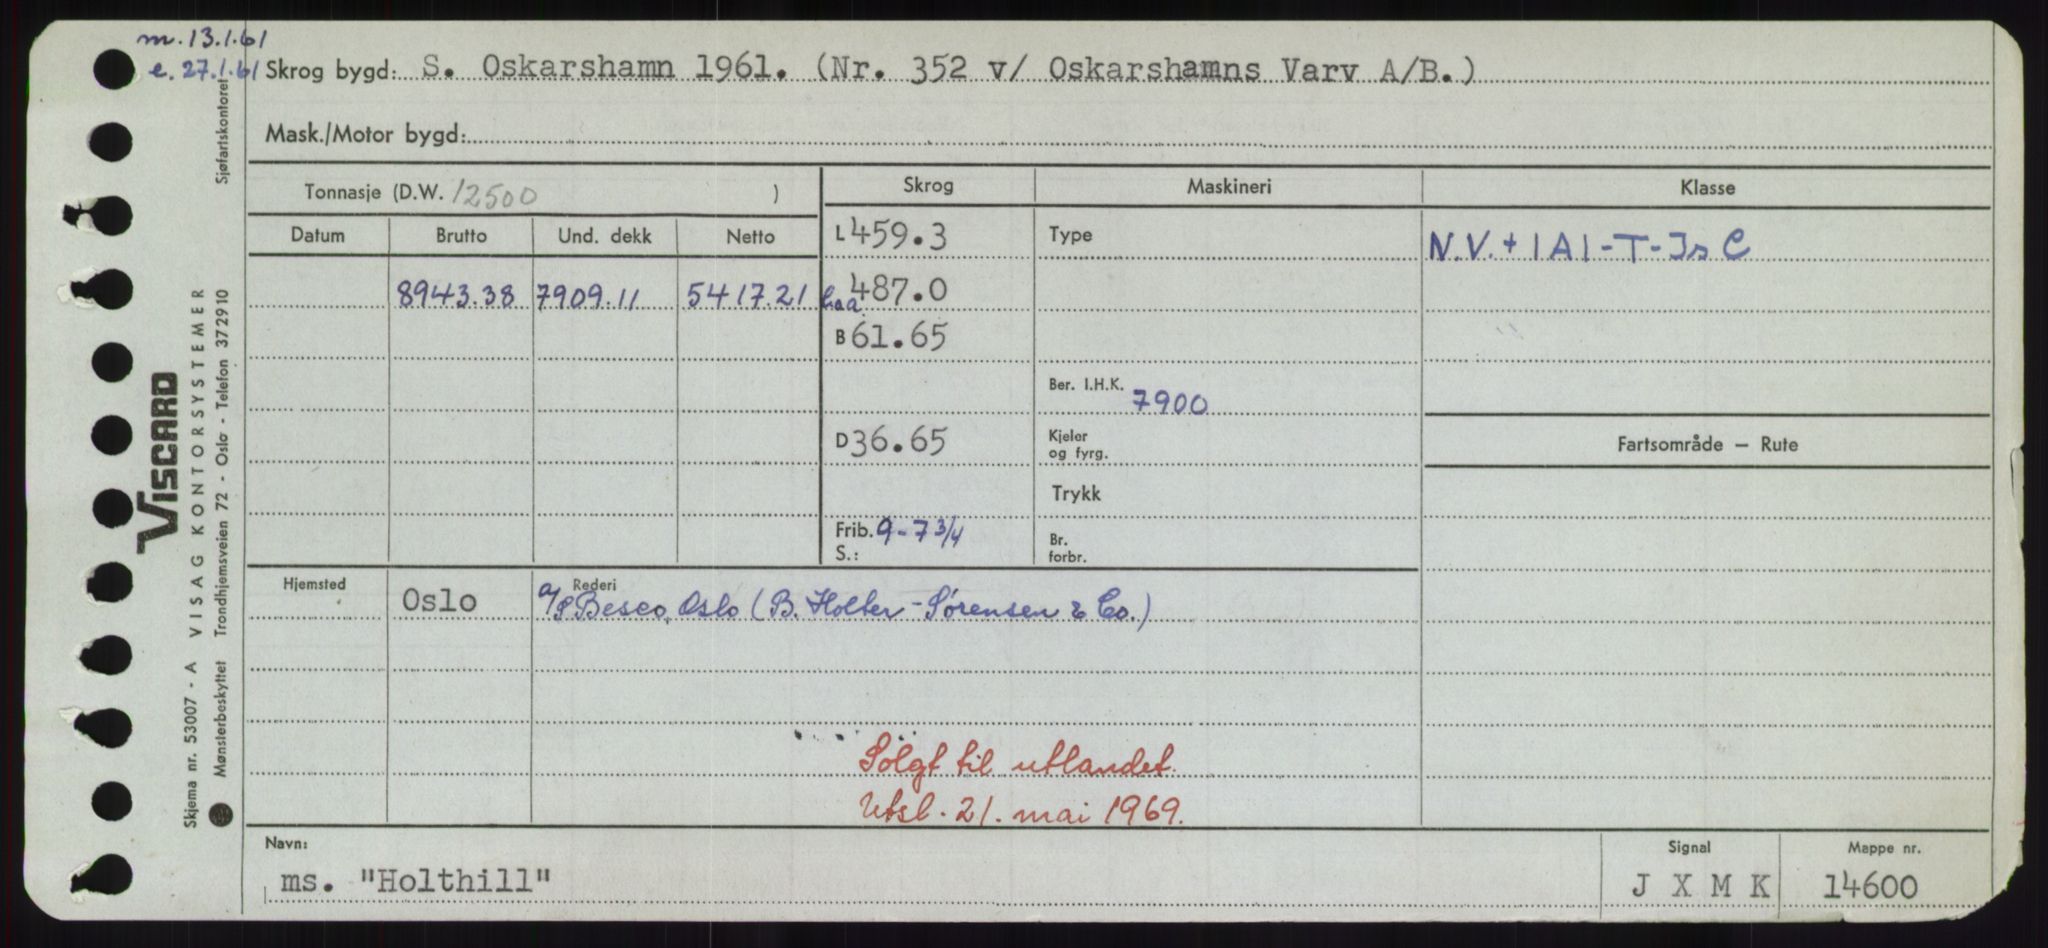 m. 13.1.61
e. 27.1.61
Skrog bygd: S. Oskarshamn 1961. (Nr. 352 v/ Oskarshamns Varv A/B.)
Mask./Motor bygd:
Tonnasje (D.W. 12500 )
Skrog Maskineri Klasse
Datum Brutto Und. dekk Netto
L 459.3 Type N.V. + 1A1 - T - Is C
8943.38 7909.11 5417.21 Loa 487.0
B 61.65
Ber. I.H.K. 7900
D 36.65 Kjeler og fyrg. Fartsområde — Rute
Trykk
Frib. 9-7 3/4
S.:
Br. forbr.
Hjemsted Oslo Rederi A/S Besco, Oslo (B. Holter-Sørensen & Co.)
Solgt til utlandet.
Utsl. 21. mai 1969.
Navn: Signal Mappe nr.
ms. "Holthill" J X M K 14600
Skjema nr. 53007 - A VISAG KONTORSYSTEMER
VISCARD
Mønsterbeskyttet Trondhjemsveien 72 - Oslo - Telefon 372910
Sjøfartskontoret